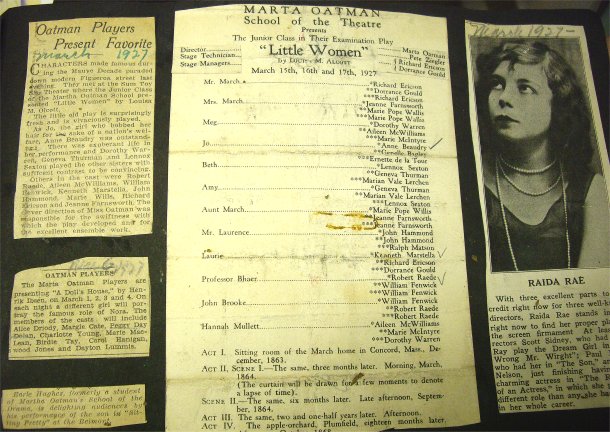 Oatman Players
Present Favorite
March 1927
CHARACTERS made famous dur-
ing the Mauve Decade paraded
down modern Figueroa street last
evening. They met at the Sum Toy
Theater where the Junior Class
of the Marta Oatman School pre-
sented "Little Women" by Louisa
M. Olcott.
The little old play is surprisingly
fresh and is vivaciously played.
As Jo, the girl who bobbed her
hair for the sake of a nation's wel-
fare, Anne Beaudry was outstand-
ing. There was exuberant life in
her performance and Dorothy War-
ren, Geneva Thurman and Lennox
Sexton played the other sisters with
sufficient contrast to be convincing.
Others in the cast were Robert
Raede, Aileen McWilliams, William
Fenwick, Kenneth Marstella, John
Hammond, Marie Wills, Richard
Ericson and Jeanne Farnsworth. The
clever direction of Miss Oatman was
responsible for the swiftness with
which the play developed and for
the excellent ensemble work.
1927
OATMAN PLAYERS
The Marta Oatman Players are
presenting "A Doll's House," by Hen-
rik Ibsen, on March 1, 2, 3 and 4. On
each night a different girl will por-
tray the famous role of Nora. The
members of the cast will include
Alice Driody, Margie Cate, Peggy Day
Dolan, Charlotte Young, Marie Mac-
Lean, Birdie Tay, Carol Hanigan,
wood Jones and Dayton Lummis.
Earle Hughes, formerly a student
of Marta Oatman's School of the
Drama, is delighting audiences by
his performance of the son in "Sit-
ting Pretty" at the Belmont.
MARTA OATMAN
School of the Theatre
Presents
The Junior Class in Their Examination Play
"Little Women"
By Louisa M. Alcott
Director Marta Oatman
Stage Technician Pete Ziegler
Stage Managers Richard Ericson
Dorrance Gould
March 15th, 16th and 17th, 1927
Mr. March *Richard Ericson
**Dorrance Gould
***Richard Ericson
Mrs. March *Jeanne Farnsworth
**Marie Pope Wallis
***Marie Pope Willis
Meg *Dorothy Warren
**Aileen McWilliams
***Marie McIntyre
Jo *Anne Beaudry
Bagley
***Ernette de la Tour
Beth *Lennox Sexton
**Geneva Thurman
***Marian Vale Lerchen
Amy *Geneva Thurman
**Marian Vale Lerchen
***Lennox Sexton
Aunt March *Marie Pope Willis
**Jeanne Farnsworth
***Jeanne Farnsworth
Mr. Laurence *John Hammond
**John Hammond
***Ralph Matson
Laurie *Kenneth Marstella
**Richard Ericson
***Dorrance Gould
Professor Bhaer *Robert Raede
**William Fenwick
***William Fenwick
John Brooke *William Fenwick
**Robert Raede
***Robert Raede
Hannah Mullett *Aileen McWilliams
**Marie McIntyre
***Dorothy Warren
ACT I. Sitting room of the March home in Concord, Mass., De-
cember, 1863.
ACT II, SCENE I.—The same, three months later. Morning, March,
1864.
(The curtain will be drawn for a few moments to denote
a lapse of time).
SCENE II.—The same, six months later. Late afternoon, Septem-
ber, 1864.
ACT III. The same, two and one-half years later. Afternoon.
ACT IV. The apple-orchard, Plumfield, eighteen months later,
1868
March 1927-
RAIDA RAE
With three excellent parts to
credit right now for three well-k
directors, Raida Rae stands in
right now to find her proper pla
the screen firmament At leas
rectors Scott Sidney, who had
Ray play the Dream Girl in
Wrong Mr. Wright"; Paul
who had her in "The Son," an
Nelson, just finishing having
charming actress in "The P
of an Actress," in which she t
different role than any she ha
in her whole career.